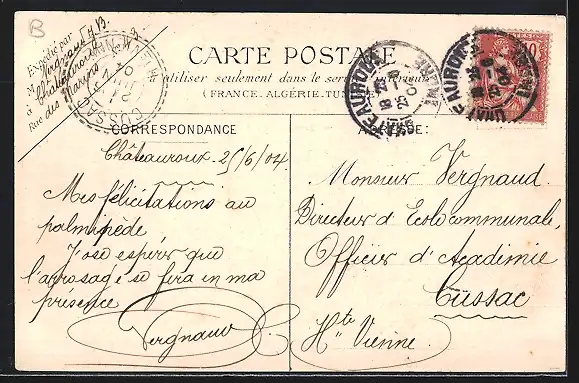 B
Expédié par
M Vergnaud B.
à Châteauroux
Rue des Marins 23
CARTE POSTALE
à utiliser seulement dans le service intérieur
(FRANCE, ALGÉRIE, TUNISIE)
CHATEAUROUX
INDRE
CHATEAUROUX
INDRE
CUSSAC
HTE VIENNE
10
CORRESPONDANCE
Châteauroux. 25/6/04.
Mes félicitations au
palmipède
J'ose espérer que
l'arrosage se fera en ma
présence
Vergnaud
ADRESSE:
Monsieur Vergnaud.
Directeur d'Ecole communale,
Officier d'Académie
Cussac
Hte Vienne.